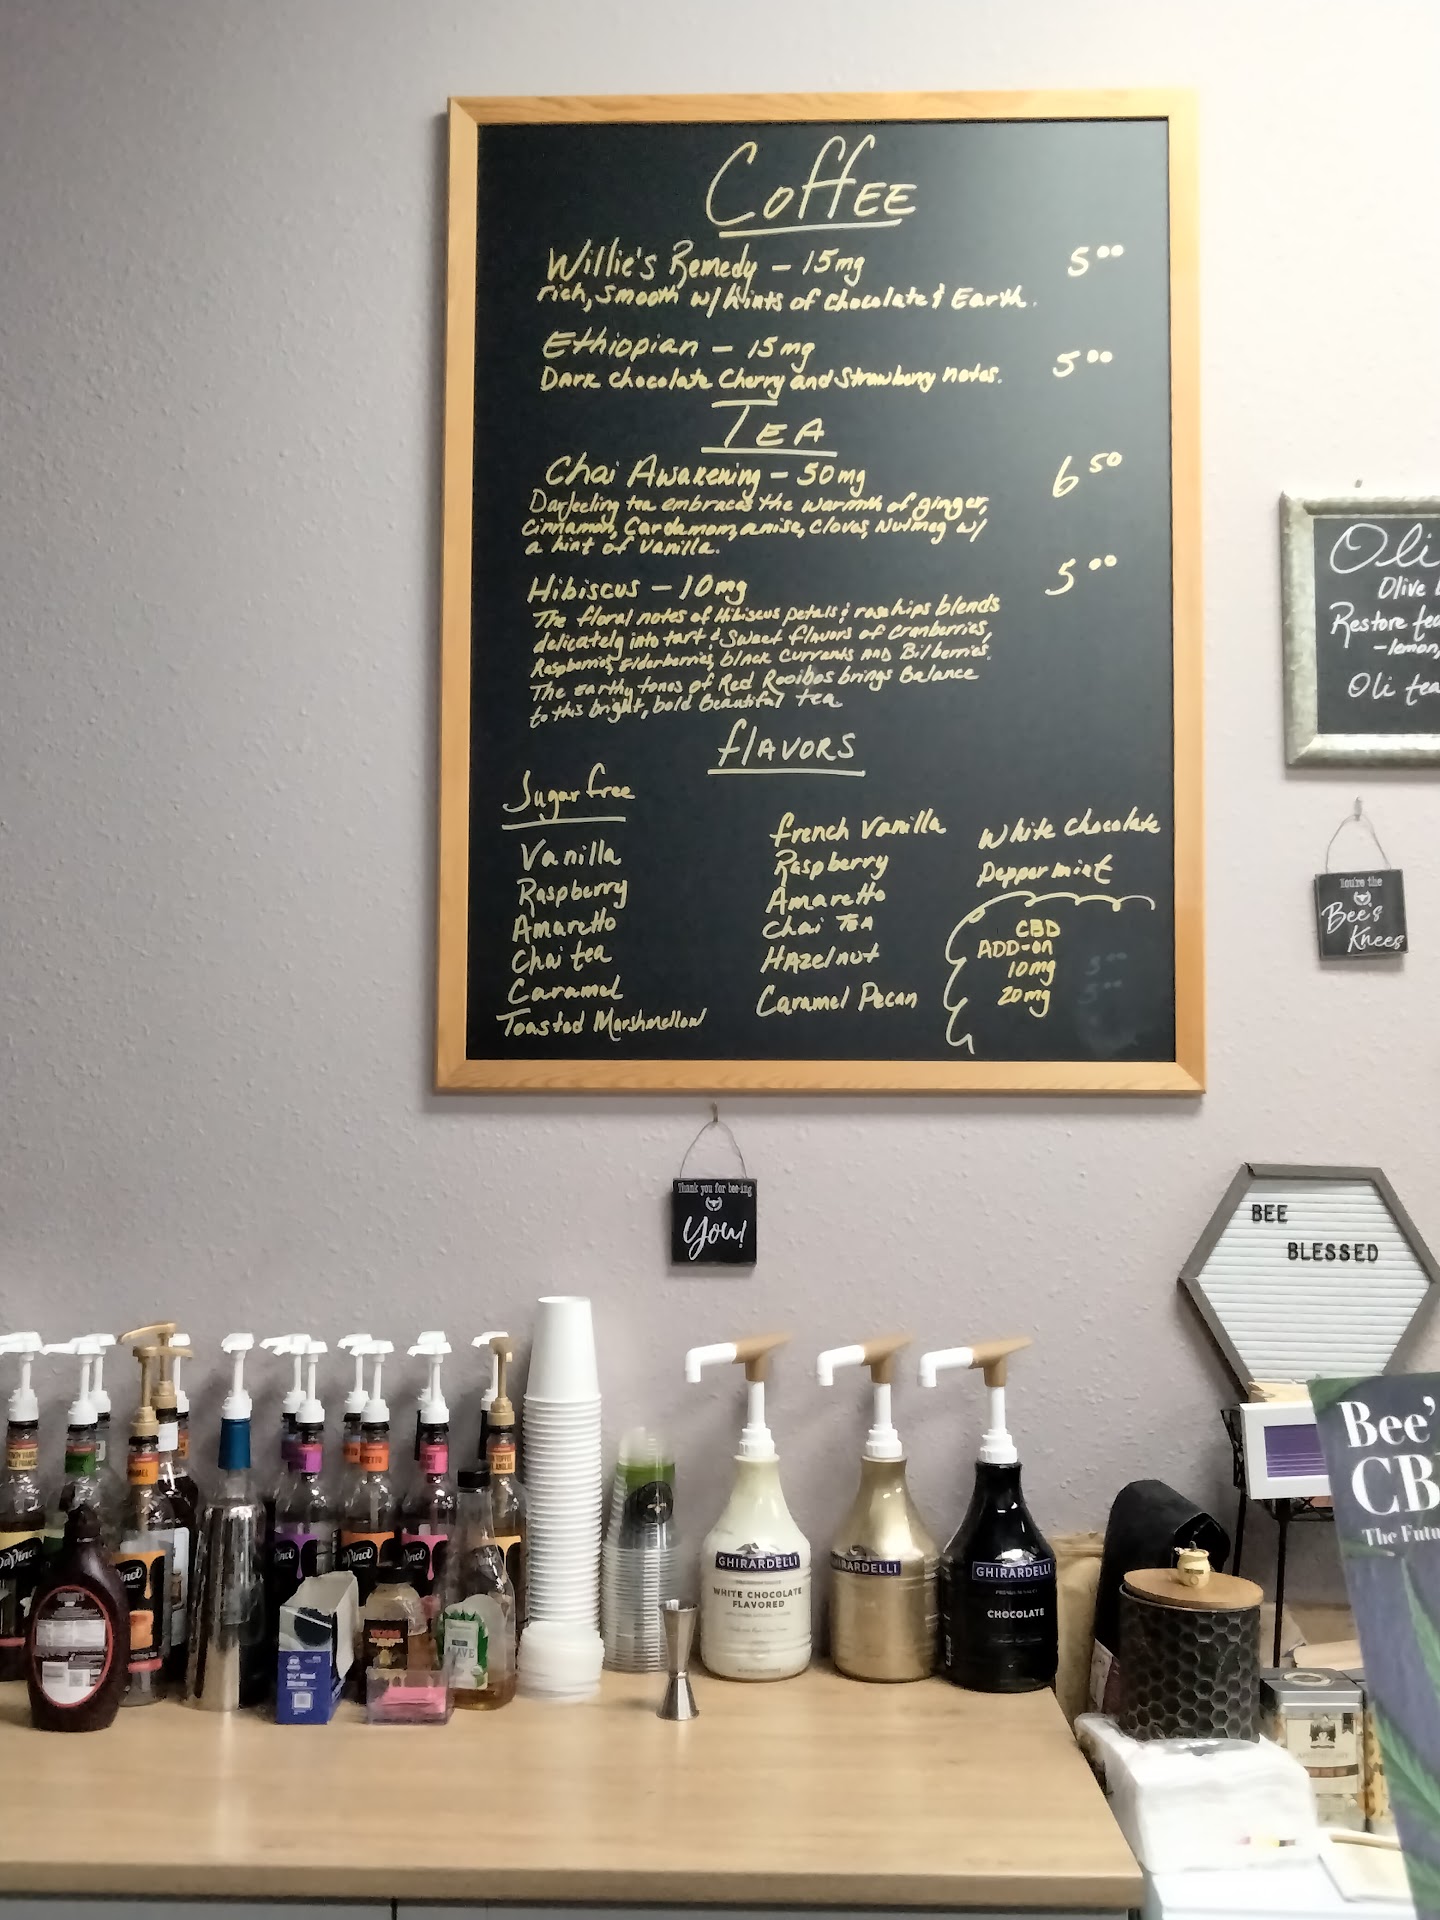 Coffee
Willie's Remedy - 15mg 5.00
rich, smooth w/ hints of chocolate & Earth.
Ethiopian - 15mg
Dark chocolate Cherry and Strawberry notes. 5.00
TEA
Chai Awakening - 50mg 6.50
Darjeeling tea embraces the warmth of ginger,
Cinnamon, Cardamom, anise, Cloves, Nutmeg w/
a hint of Vanilla.
Hibiscus - 10mg 5.00
The floral notes of Hibiscus petals & rosehips blends
delicately into tart & Sweet flavors of Cranberries,
Raspberries, Elderberries, black Currents AND Bilberries.
The earthy tones of Red Rooibos brings Balance
to this bright, bold Beautiful tea
flAVORS
Sugar free
Vanilla
Raspberry
Amaretto
Chai tea
Caramel
Toasted Marshmellow
french Vanilla
Raspberry
Amaretto
Chai TEA
HAzelnut
Caramel Pecan
White Chocolate
Peppermint
CBD
ADD-on
10mg 5.00
20mg 5.00
Oli
Olive
Restore tea
-lemon,
Oli tea
You're the
Bee's
Knees
Thank you for bee-ing
You!
BEE
BLESSED
Bee'
CB
The Futu
DaVinci
DaVinci
DaVinci
GHIRARDELLI
WHITE CHOCOLATE
FLAVORED
GHIRARDELLI
GHIRARDELLI
CHOCOLATE
AGAVE